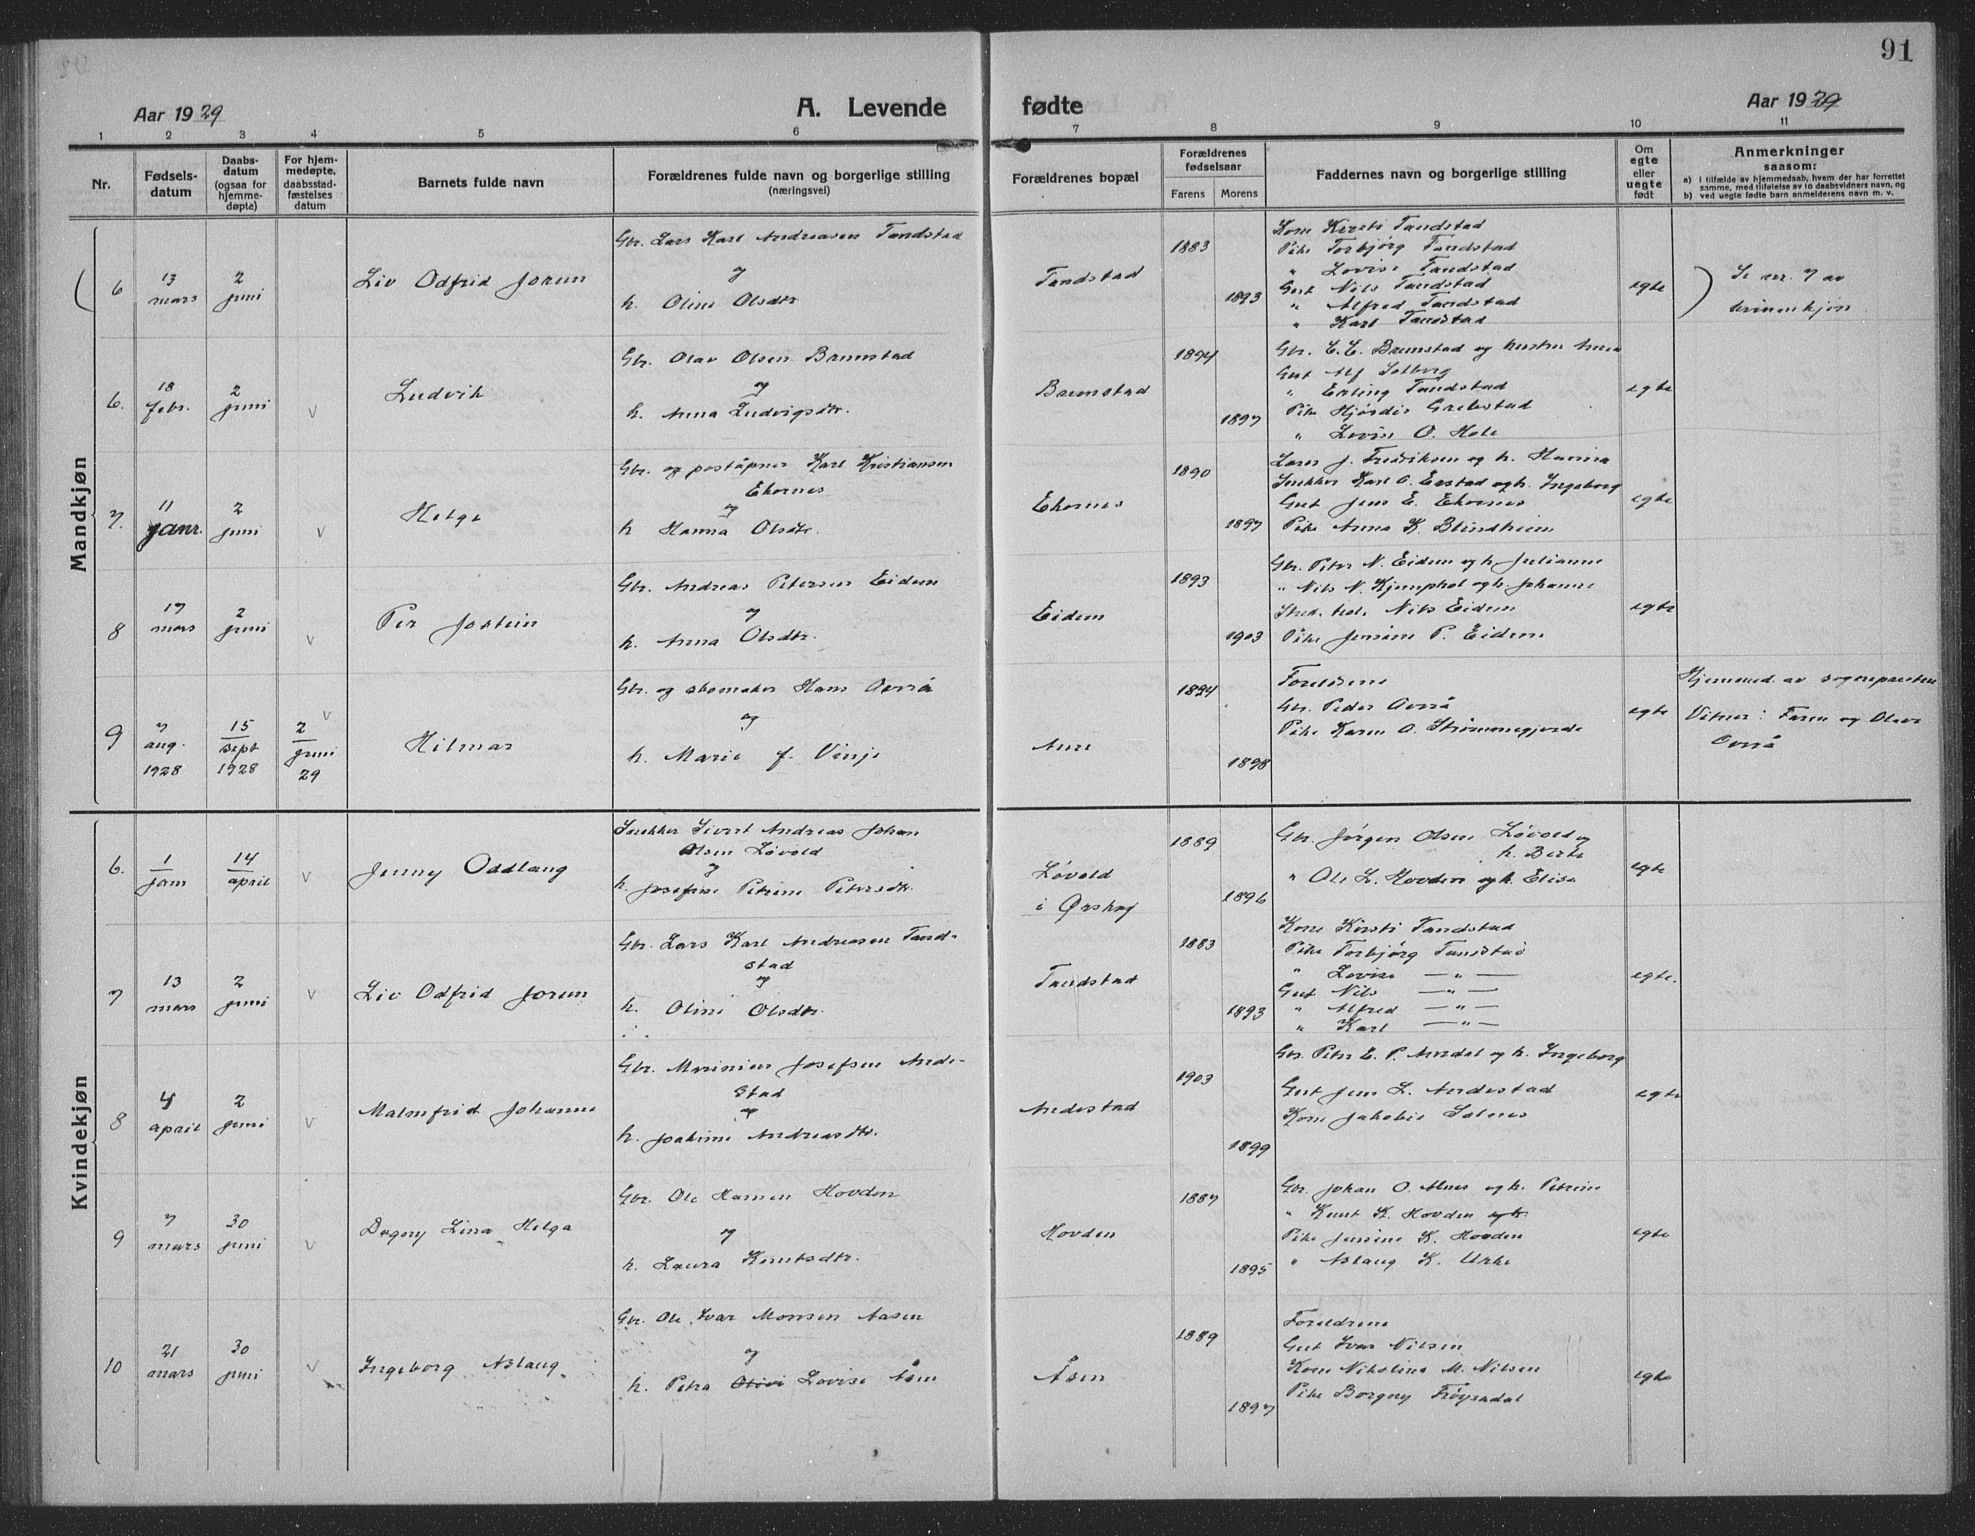 91
Aar 1929
A. Levende fødte
Aar 1929
1 2 3 4 5 6 7 8 9 10 11
Nr.
Fødsels-
datum
Daabs-
datum
(ogsaa for
hjemme-
døpte)
For hjem-
medøpte,
daabsstad-
fæstelses
datum
Barnets fulde navn
Forældrenes fulde navn og borgerlige stilling
(næringsvei)
Forældrenes bopæl
Forældrenes
fødselsaar
Farens Morens
Faddernes navn og borgerlige stilling
Om
egte
eller
uegte
født
Anmerkninger
saasom:
a) i tilfælde av hjemmedaab, hvem der har forrettet
samme, med tilføielse av to daabsvidners navn, og
b) ved uegte fødte barn anmelderens navn m. v.
Mandkjøn
6
13
mars
2
juni
Liv Odfrid Jorun
Gbr. Lars Karl Andreasen Tandstad
og
h. Oline Olsdtr
Tandstad
1883
1893
Kone Kirsti Tandstad
Pike Torbjørg Tandstad
" Lovise Tandstad
Gut Nils Tandstad
" Alfred Tandstad
" Karl Tandstad
egte
Se nr. 7 av
kvinnekjøn
6.
18
febr.
2
juni
v
Ludvik
Gbr. Olav Olsen Brunstad
og
h. Anna Ludvigsdtr.
Brunstad
1894
1897
Gbr. E. E. Brunstad og hustru Anna
Gut Alf Solborg
" Erling Tandstad
Pike Hjørdis Grebstad
" Lovise O. Hole
egte
7.
11
janr.
2
juni
v
Helge
Gbr. og poståpner Karl Kristiansen
Ekornes
og
h Hanna Olsdtr.
Ekornes
1890
1897
Lærer J. Fredriksen og h. Hanna
Snekker Karl O. Erstad og h. Ingeborg
Gut Jens E. Ekornes
Pike Anna K. Blindheim
egte
8
17
mars
2
juni
v
Per Jostein
Gbr. Andreas Petersen Eidem
og
h. Anna Olsdtr.
Eidem
1893
1903
Gbr. Peter N. Eidem og h. Julianne
" Nils N. Kjemphol og h. Johanne
Stud. Nils Eidem
Pike Jensine P. Eidem
egte
9
7
aug.
1928
15
sept
1928
v
2
juni
29
Hilmar
Gbr. og skomaker Hans Overå
og
h. Marie f. Vinje
Aure
1894
1898
Foreldrene
Gbr. Peder Overå
Pike Karen O. Strømmegjerde
egte
Hjemmed. av sognepresten
Vitner: Faren og Olav
Overå
Kvindekjøn
6.
1
jan
14
april
v
Jenny Oddlaug
Snekker Sivert Andreas Johan
Olsen Løvold
og
h. Josefine Petrine Petersdtr.
Løvold
i Ørskog
1889
1896
Gbr. Jørgen Olsen Løvold og
h. Berte
" Ole L. Hovden og h. Elise
egte
7
13
mars
2
juni
v
Liv Odfrid Jorun
Gbr. Lars Karl Andreasen Tand-
stad
og
h. Oline Olsdtr.
Tandstad
1883
1893
Kone Kirsti Tandstad
Pike Torbjørg Tandstad
" Lovise — " —
Gut Nils — " —
" Alfred — " —
" Karl — " —
egte.
8
4
april
2
juni
v
Malmfrid Johanne
Gbr. Marinius Josefsen Ande-
stad
og
h. Joakime Andreasdtr.
Andestad
1903
1899
Gbr. Peter E. P. Aursdal og h. Ingeborg
Gut Jens L. Andestad
Kone Jakobie Solnes
egte
9
7
mars
30
juni
v
Dagny Lina Helga
Gbr. Ole Hansen Hovden
og
h. Laura Knutsdtr.
Hovden
1887
1895
Gbr. Johan O. Alnes og h. Petrine
" Knut K. Hovden og h.
Pike Jensine K. Hovden
" Aslaug K. Urke
egte
10
21
mars
30
juni
v
Ingeborg Aslaug
Gbr. Ole Ivar Monsen Aasen
og
h. Petra Olivi Lovise Åsen
Åsen
1889
1897
Foreldrene
Gut Ivar Nilsen
Kone Nikoline M. Nilsen
Pike Borgny Frøysadal
egte